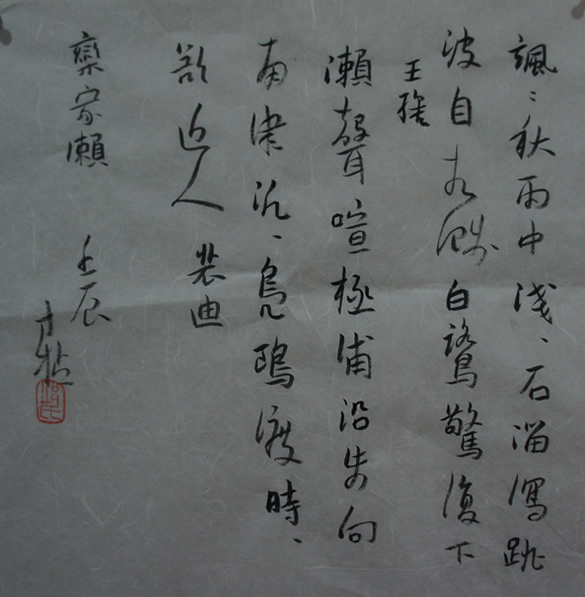 颯〻秋雨中淺〻石溜瀉跳
波自相濺白鷺驚復下
王維
瀨聲喧極浦沿步向
南津汎〻鳧鷗渡時〻
欲近人 裴迪
欒家瀨 壬辰